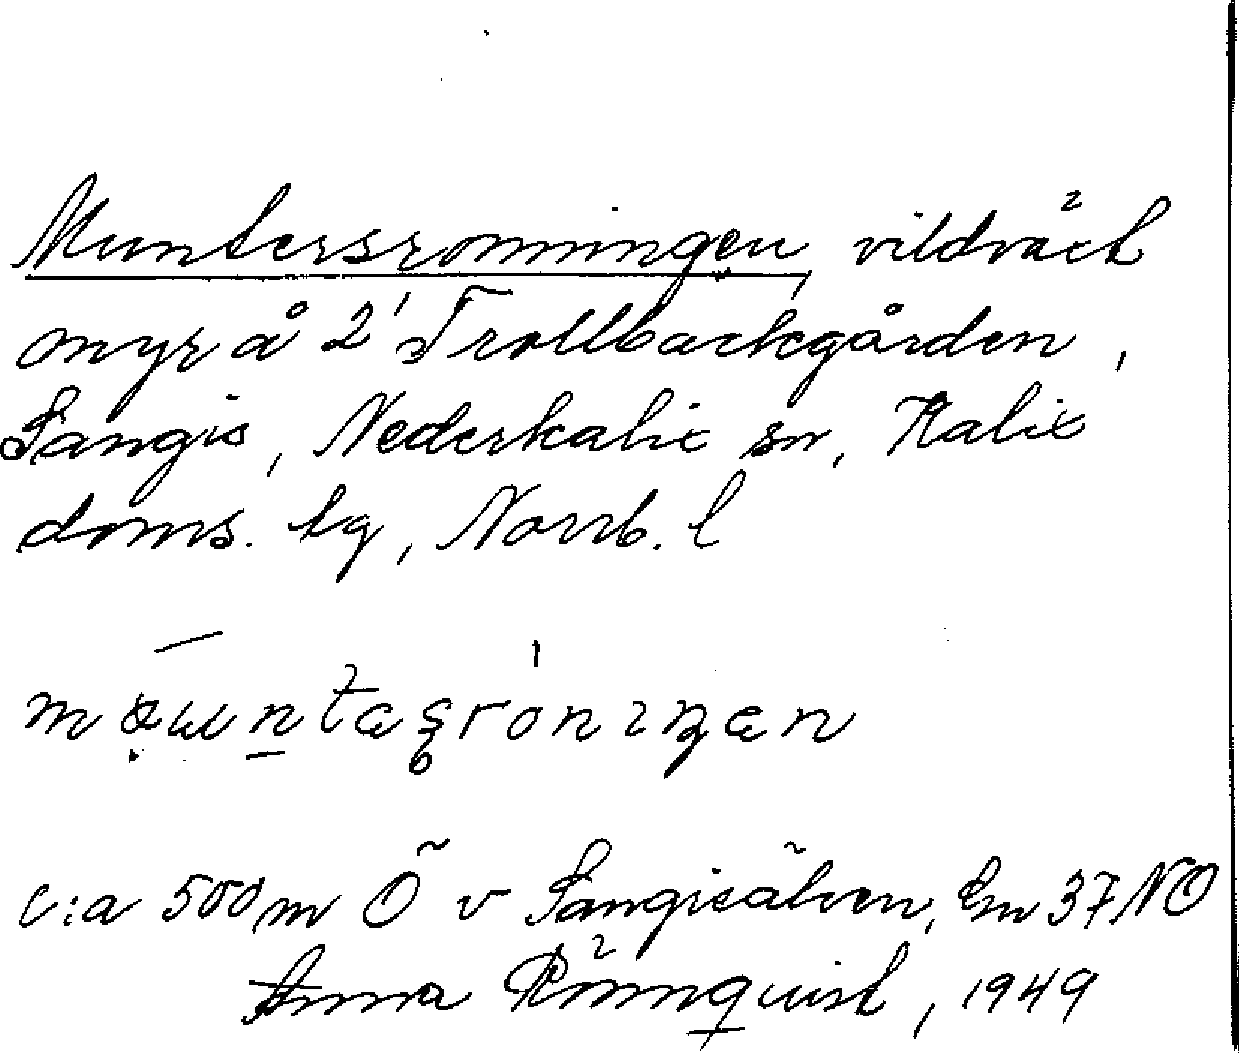 Muntersronningen, vildväxt
myr å 2¹ Trollbackgården,
Sangis, Nederkalix sn, Kalix
doms. tg, Norrb. l
c:a 500 m Ö v Sangisälven, Em 37 NO
Anna Rönnquist, 1949